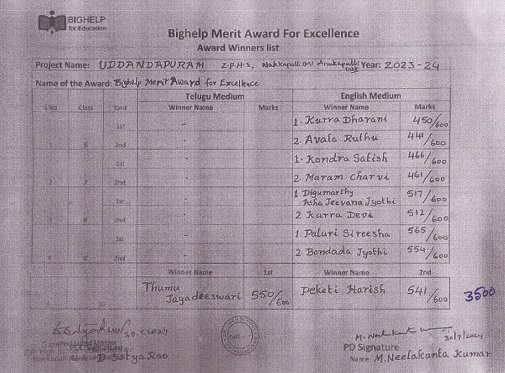 BIGHELP
for Education
Bighelp Merit Award For Excellence
Award Winners list
Project Name: UDDANDAPURAM Z.P.H.S, Nakkapalli Year: 2023-24
Name of the Award: Bighelp Merit Award for Excellence
Telugu Medium English Medium
S.No Class Rank Winner Name Marks Winner Name Marks
1st - 1. Kurra Dharani 450/600
6 2nd - 2. Avala Ruthu 441/600
1st - 1. Kondra Satish 466/600
7 2nd - 2. Maram Charvi 461/600
1st - 1 Digumarthy Asha Jeevana Jyothi 517/600
8 2nd - 2 Kurra Devi 512/600
1st - 1. Paluri Sireesha 565/600
9 2nd - 2 Bondada Jyothi 554/600
Winner Name 1st Winner Name 2nd
10 Thumu Jayadeeswari 550/600 Peketi Harish 541/600 3500
30/7/2024
PD Signature
D. Satya Rao Name: M. Neelakanta Kumar